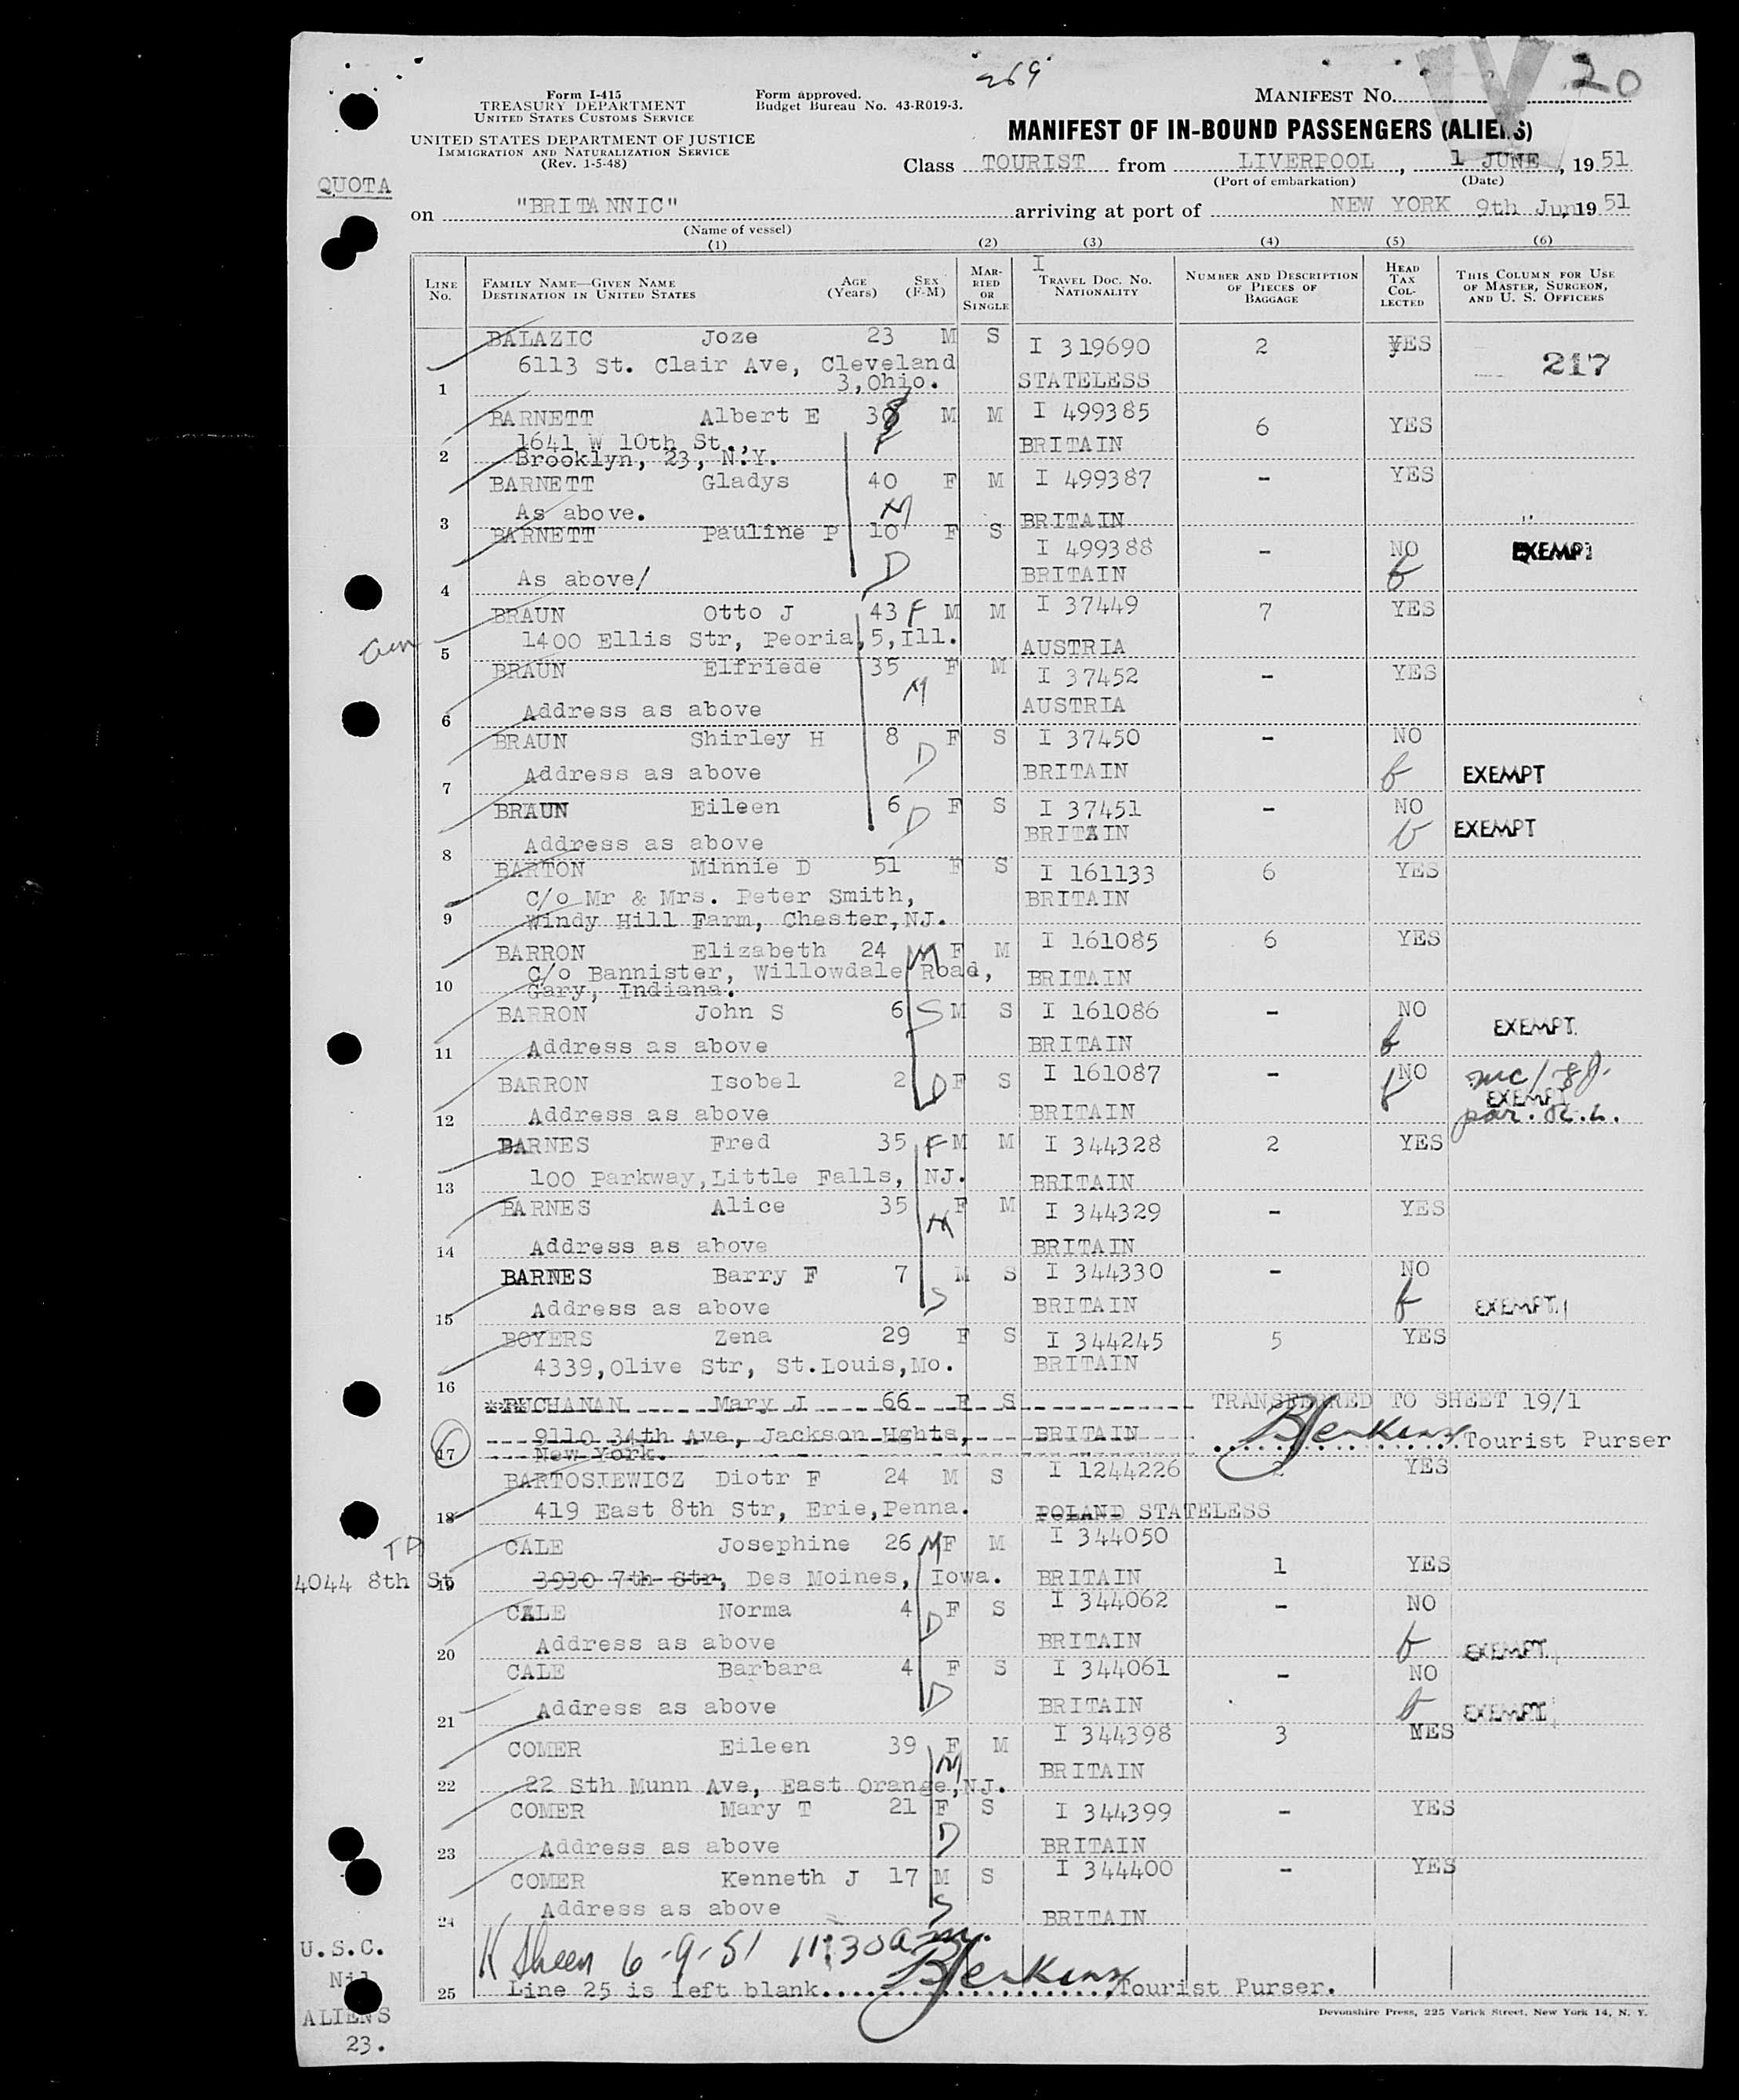 269
20
Form I-415
TREASURY DEPARTMENT
UNITED STATES CUSTOMS SERVICE
UNITED STATES DEPARTMENT OF JUSTICE
IMMIGRATION AND NATURALIZATION SERVICE
(Rev. 1-5-48)
Form approved.
Budget Bureau No. 43-R019-3.
MANIFEST No.
MANIFEST OF IN-BOUND PASSENGERS (ALIENS)
Class TOURIST from LIVERPOOL, 1 JUNE, 1951
(Port of embarkation) (Date)
QUOTA
on "BRITANNIC" arriving at port of NEW YORK 9th Jun, 1951
(Name of vessel)
(1) (2) (3) (4) (5) (6)
LINE No. FAMILY NAME—GIVEN NAME DESTINATION IN UNITED STATES AGE (Years) SEX (F-M) MARRIED OR SINGLE I TRAVEL DOC. NO. NATIONALITY NUMBER AND DESCRIPTION OF PIECES OF BAGGAGE HEAD TAX COLLECTED THIS COLUMN FOR USE OF MASTER, SURGEON, AND U. S. OFFICERS
BALAZIC Joze 23 M S I 319690 2 YES 217
6113 St. Clair Ave, Cleveland
1 3,Ohio. STATELESS
BARNETT Albert E 38 M M I 499385 6 YES
1641 W 10th St., BRITAIN
2 Brooklyn, 23, N.Y.
BARNETT Gladys 40 F M I 499387 - YES
3 As above. M BRITAIN
BARNETT Pauline P 10 F S I 499388 - NO EXEMPT
4 As above/ D BRITAIN
BRAUN Otto J 43 F M M I 37449 7 YES
5 1400 Ellis Str, Peoria,5,Ill. AUSTRIA
BRAUN Elfriede 35 F M I 37452 - YES
6 Address as above M AUSTRIA
BRAUN Shirley H 8 F S I 37450 - NO
7 Address as above D BRITAIN EXEMPT
BRAUN Eileen 6 D F S I 37451 - NO
8 Address as above BRITAIN EXEMPT
BARTON Minnie D 51 F S I 161133 6 YES
C/o Mr & Mrs. Peter Smith, BRITAIN
9 Windy Hill Farm, Chester,NJ.
BARRON Elizabeth 24 M F M I 161085 6 YES
C/o Bannister, Willowdale Road, BRITAIN
10 Gary, Indiana.
BARRON John S 6 S M S I 161086 - NO EXEMPT
11 Address as above BRITAIN
BARRON Isobel 2 D F S I 161087 - NO
12 Address as above BRITAIN EXEMPT
BARNES Fred 35 F M M I 344328 2 YES
13 100 Parkway,Little Falls, NJ. BRITAIN
BARNES Alice 35 F M I 344329 - YES
14 Address as above M BRITAIN
BARNES Barry F 7 M S I 344330 - NO
15 Address as above S BRITAIN EXEMPT
BOYERS Zena 29 F S I 344245 5 YES
16 4339,Olive Str, St.Louis,Mo. BRITAIN
***BUCHANAN Mary J 66 F S TRANSFERRED TO SHEET 19/1
9110 34th Ave, Jackson Hghts, BRITAIN BJenkins Tourist Purser
17 New York.
BARTOSIEWICZ Diotr F 24 M S I 1244226 2 YES
18 419 East 8th Str, Erie,Penna. POLAND STATELESS
CALE Josephine 26 M F M I 344050 1 YES
4044 8th St 19 3930 7th Str, Des Moines, Iowa. BRITAIN
CALE Norma 4 F S I 344062 - NO
20 Address as above D BRITAIN EXEMPT
CALE Barbara 4 F S I 344061 - NO
21 Address as above D BRITAIN EXEMPT
COMER Eileen 39 F M I 344398 3 YES
22 22 Sth Munn Ave, East Orange,NJ. M BRITAIN
COMER Mary T 21 F S I 344399 - YES
23 Address as above D BRITAIN
COMER Kenneth J 17 M S I 344400 - YES
24 Address as above S BRITAIN
K Sheen 6-9-51 11:30 a.m.
25 Line 25 is left blank. BJenkins Tourist Purser.
U.S.C.
Nil
ALIENS
23.
Devonshire Press, 225 Varick Street, New York 14, N. Y.